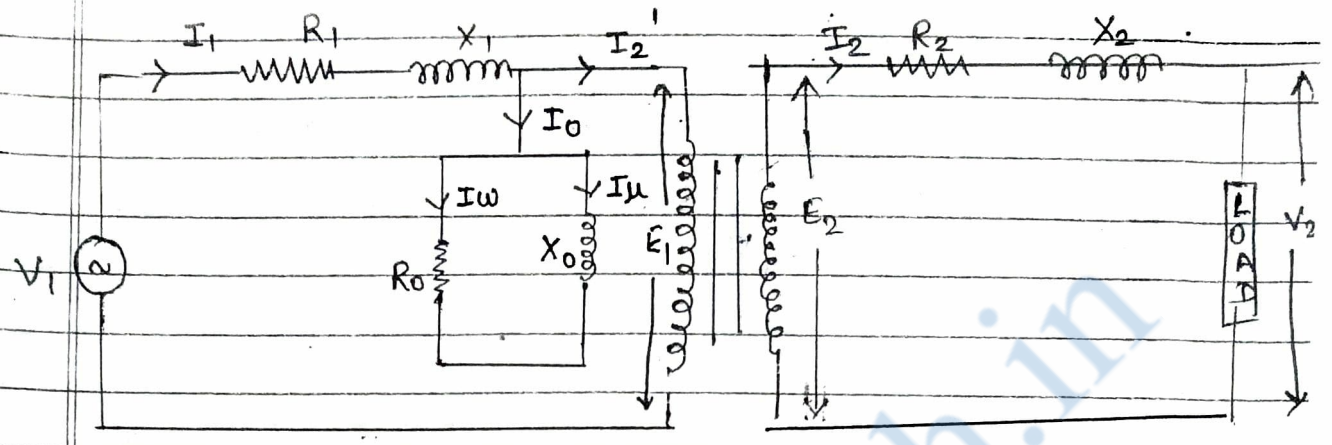 I₁ R₁ X₁ I₂' I₂ R₂ X₂
I₀
Iω Iμ
V₁ R₀ X₀ E₁ E₂ LOAD V₂
h.in